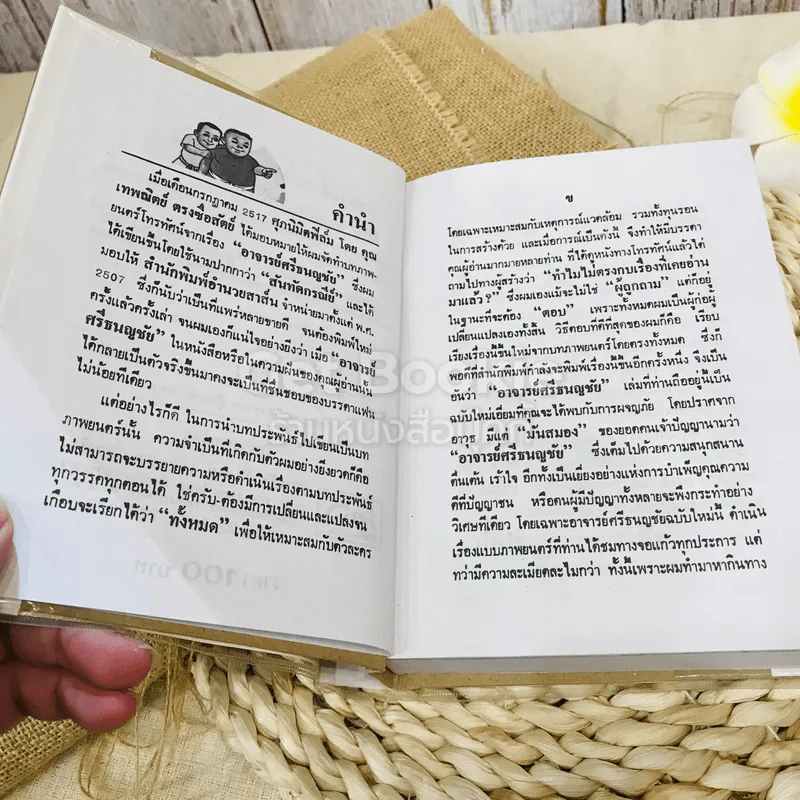 คำนำ
เมื่อเดือนกรกฎาคม 2517 ศุภนิมิตฟิล์ม โดย คุณ
เทพฒิตย์ ตรงซื่อสัตย์ ได้มอบหมายให้ผมจัดทำบทภาพ-
ยนตร์โทรทัศน์จากเรื่อง “อาจารย์ศรีธนญชัย” ซึ่งผม
ได้เขียนขึ้นโดยใช้นามปากกาว่า “สันทัดกรณีย์” และได้
มอบให้ สำนักพิมพ์อำนวยสาส์น จำหน่ายมาตั้งแต่ พ.ศ.
2507 ซึ่งก็นับว่าเป็นที่แพร่หลายขายดี จนต้องพิมพ์ใหม่
ครั้งแล้วครั้งเล่า จนผมเองก็แน่ใจอย่างยิ่งว่า เมื่อ “อาจารย์
ศรีธนญชัย” ในหนังสือหรือในความฝันของคุณผู้อ่านนั้น
ได้กลายเป็นตัวจริงขึ้นมาคงจะเป็นที่ชื่นชอบของบรรดาแฟน
ไม่น้อยทีเดียว
แต่อย่างไรก็ดี ในการนำบทประพันธ์ไปเขียนเป็นบท
ภาพยนตร์นั้น ความจำเป็นที่เกิดกับตัวผมอย่างยิ่งยวดก็คือ
ไม่สามารถจะบรรยายความหรือดำเนินเรื่องตามบทประพันธ์
ทุกวรรคทุกตอนได้ ใช่ครับ-ต้องมีการเปลี่ยนและแปลงจน
เกือบจะเรียกได้ว่า “ทั้งหมด” เพื่อให้เหมาะสมกับตัวละคร
ราคา 100 บาท
ข
โดยเฉพาะเหมาะสมกับเหตุการณ์แวดล้อม รวมทั้งทุนรอน
ในการสร้างด้วย และเมื่อการณ์เป็นดังนี้ จึงทำให้มีบรรดา
คุณผู้อ่านมากมายหลายท่าน ที่ได้ดูหนังทางโทรทัศน์แล้วได้
ถามไปทางผู้สร้างว่า “ทำไมไม่ตรงกับเรื่องที่เคยอ่าน
มาแล้ว?” ซึ่งผมเองแม้จะไม่ใช่ “ผู้ถูกถาม” แต่ก็อยู่
ในฐานะที่จะต้อง “ตอบ” เพราะทั้งหมดผมเป็นผู้ก่อผู้
เปลี่ยนแปลงเองทั้งสิ้น วิธีตอบที่ดีที่สุดของผมก็คือ เรียบ
เรียงเรื่องนี้ขึ้นใหม่จากบทภาพยนตร์โดยตรงทั้งหมด ซึ่งก็
พอดีที่สำนักพิมพ์กำลังจะพิมพ์เรื่องนี้ขึ้นอีกครั้งหนึ่ง จึงเป็น
อันว่า “อาจารย์ศรีธนญชัย” เล่มที่ท่านถืออยู่นี้เป็น
ฉบับใหม่เอี่ยมที่คุณจะได้พบกับการผจญภัย โดยปราศจาก
อาวุธ มีแต่ “มันสมอง” ของยอดคนเจ้าปัญญานามว่า
“อาจารย์ศรีธนญชัย” ซึ่งเต็มไปด้วยความสนุกสนาน
ตื่นเต้น เร้าใจ อีกทั้งเป็นเยี่ยงอย่างแห่งการบำเพ็ญคุณความ
ดีที่ปัญญาชน หรือคนผู้มีปัญญาทั้งหลายจะพึงกระทำอย่าง
วิเศษทีเดียว โดยเฉพาะอาจารย์ศรีธนญชัยฉบับใหม่นี้ ดำเนิน
เรื่องแบบภาพยนตร์ที่ท่านได้ชมทางจอแก้วทุกประการ แต่
ทว่ามีความละเมียดละไมกว่า ทั้งนี้เพราะผมทำมาหากินทาง
Get Bookie
ร้านหนังสือนัดกี